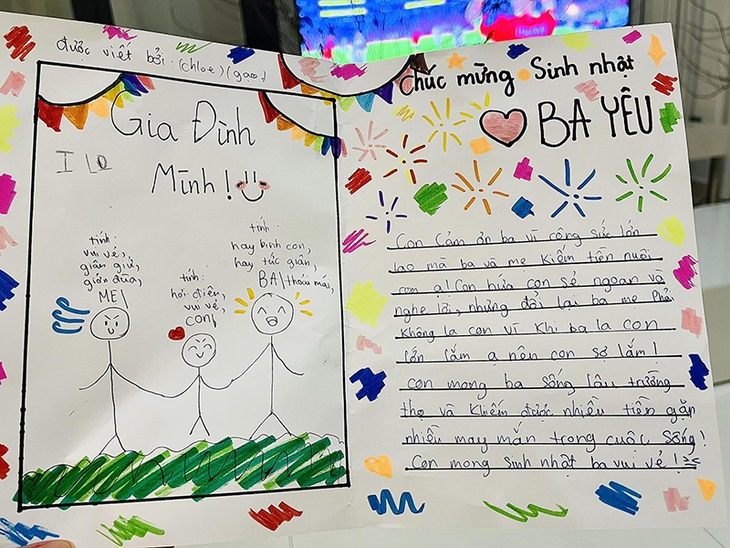 được viết bởi: (chloe) (gạo)
Gia Đình
I LO
Mình!
tính:
vui vẻ,
giận giữ,
giỡn đùa,
MẸ
tính:
hơi điệu,
vui vẻ,
con
tính:
hay binh con,
hay tức giận,
BA/thoải mái,
Chúc mừng Sinh nhật
BA YÊU
Con cảm ơn ba vì công sức lớn
lao mà ba và mẹ kiếm tiền nuôi
con ạ! Con hứa con sẽ ngoan và
nghe lời, nhưng đổi lại ba mẹ phải
không la con vì khi ba la con
lớn lắm ạ nên con sợ lắm!
con mong ba sống lâu trường
thọ và khiếm được nhiều tiền gặp
nhiều may mắn trong cuộc sống!
Con mong sinh nhật ba vui vẻ!